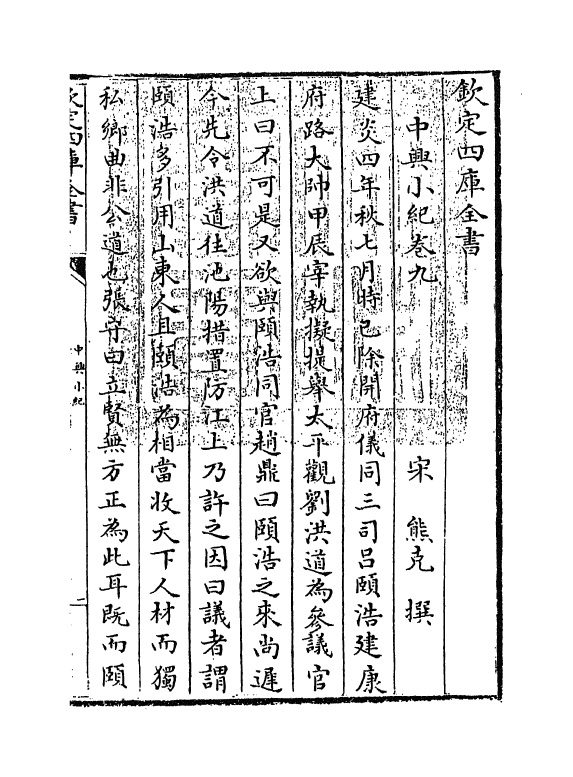 欽定四庫全書
中興小紀卷九
宋　熊克　撰
建炎四年秋七月時已除開府儀同三司呂頤浩建康
府路大帥甲辰宰執擬提舉太平觀劉洪道為參議官
上曰不可是又欲與頤浩同官趙鼎曰頤浩之來尚遲
今先令洪道往池陽措置防江上乃許之因曰議者謂
頤浩多引用山東人且頤浩為相當收天下人材而獨
私鄉曲非公道也張守曰立賢無方正為此耳既而頤
欽定四庫全書
中興小紀